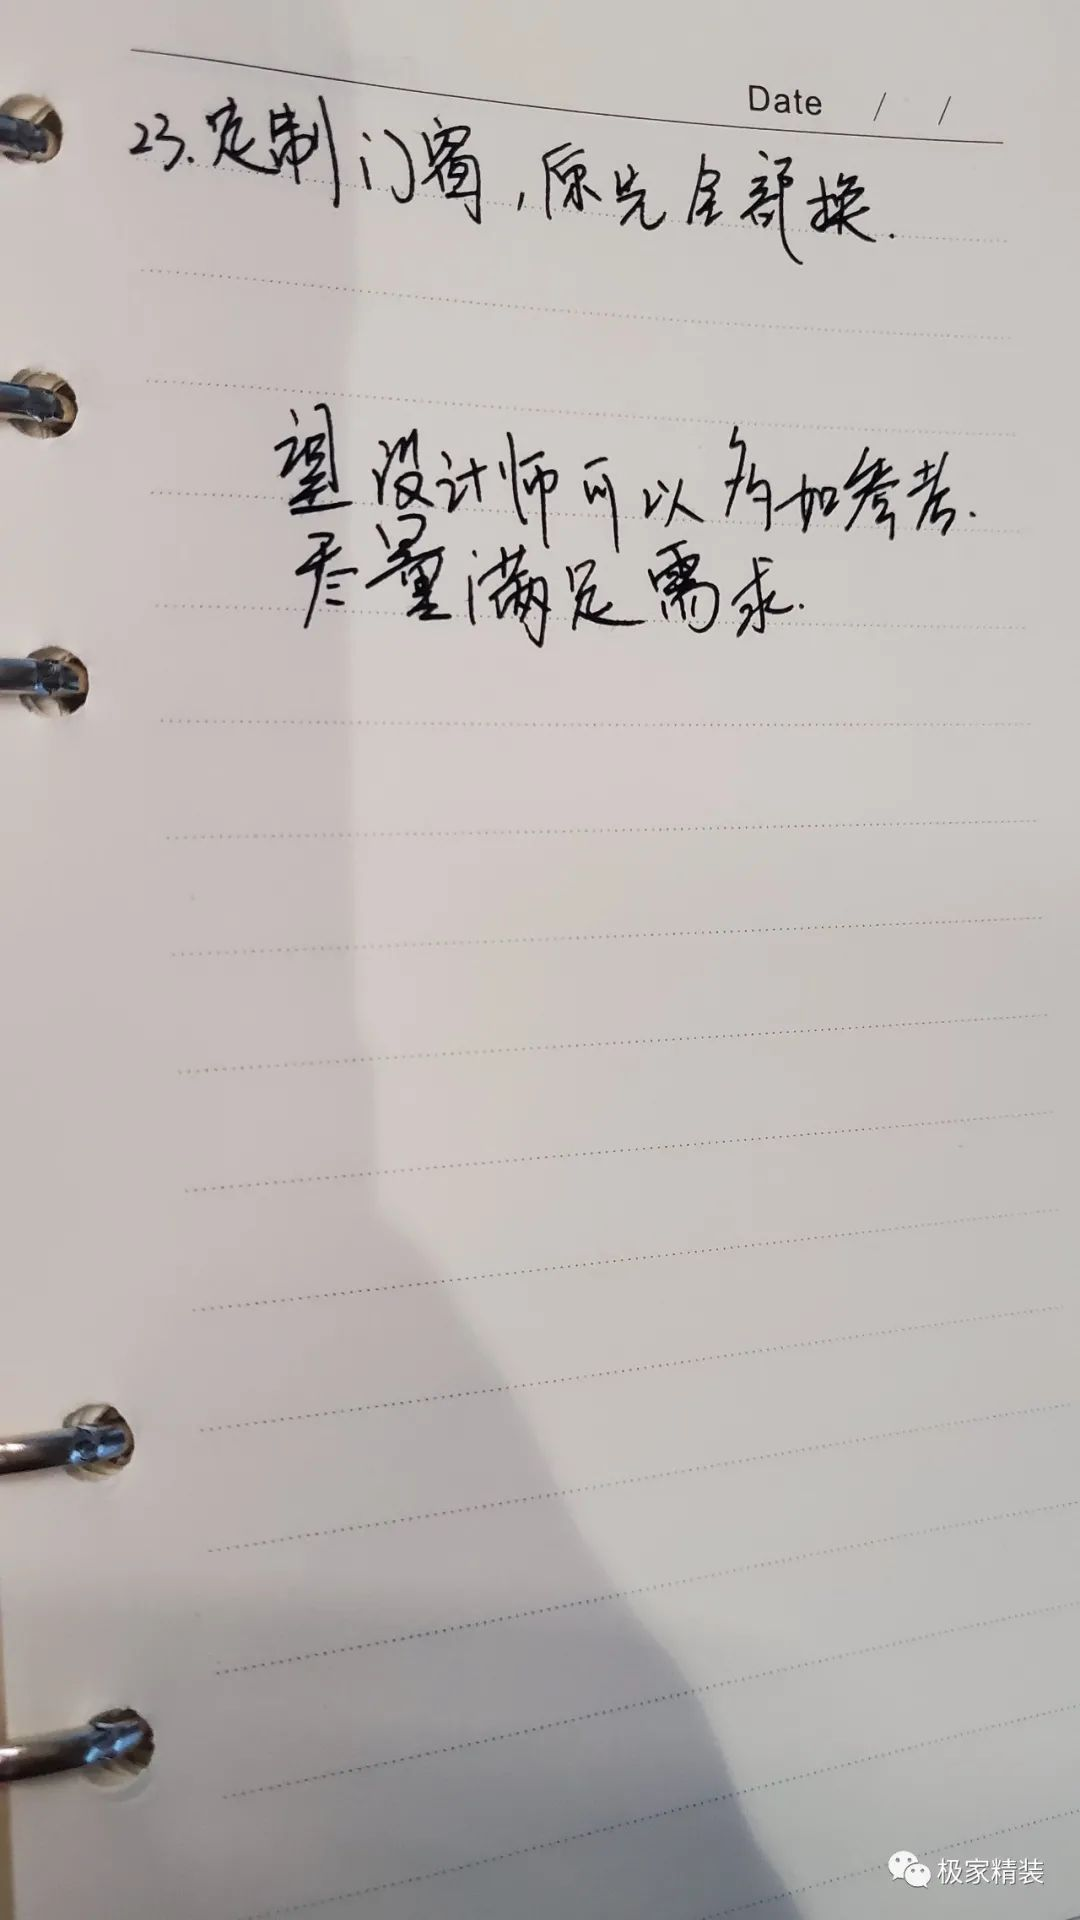 Date / /
23.定制门窗,原先全部换.
望设计师可以多加参考.
尽量满足需求.
极家精装